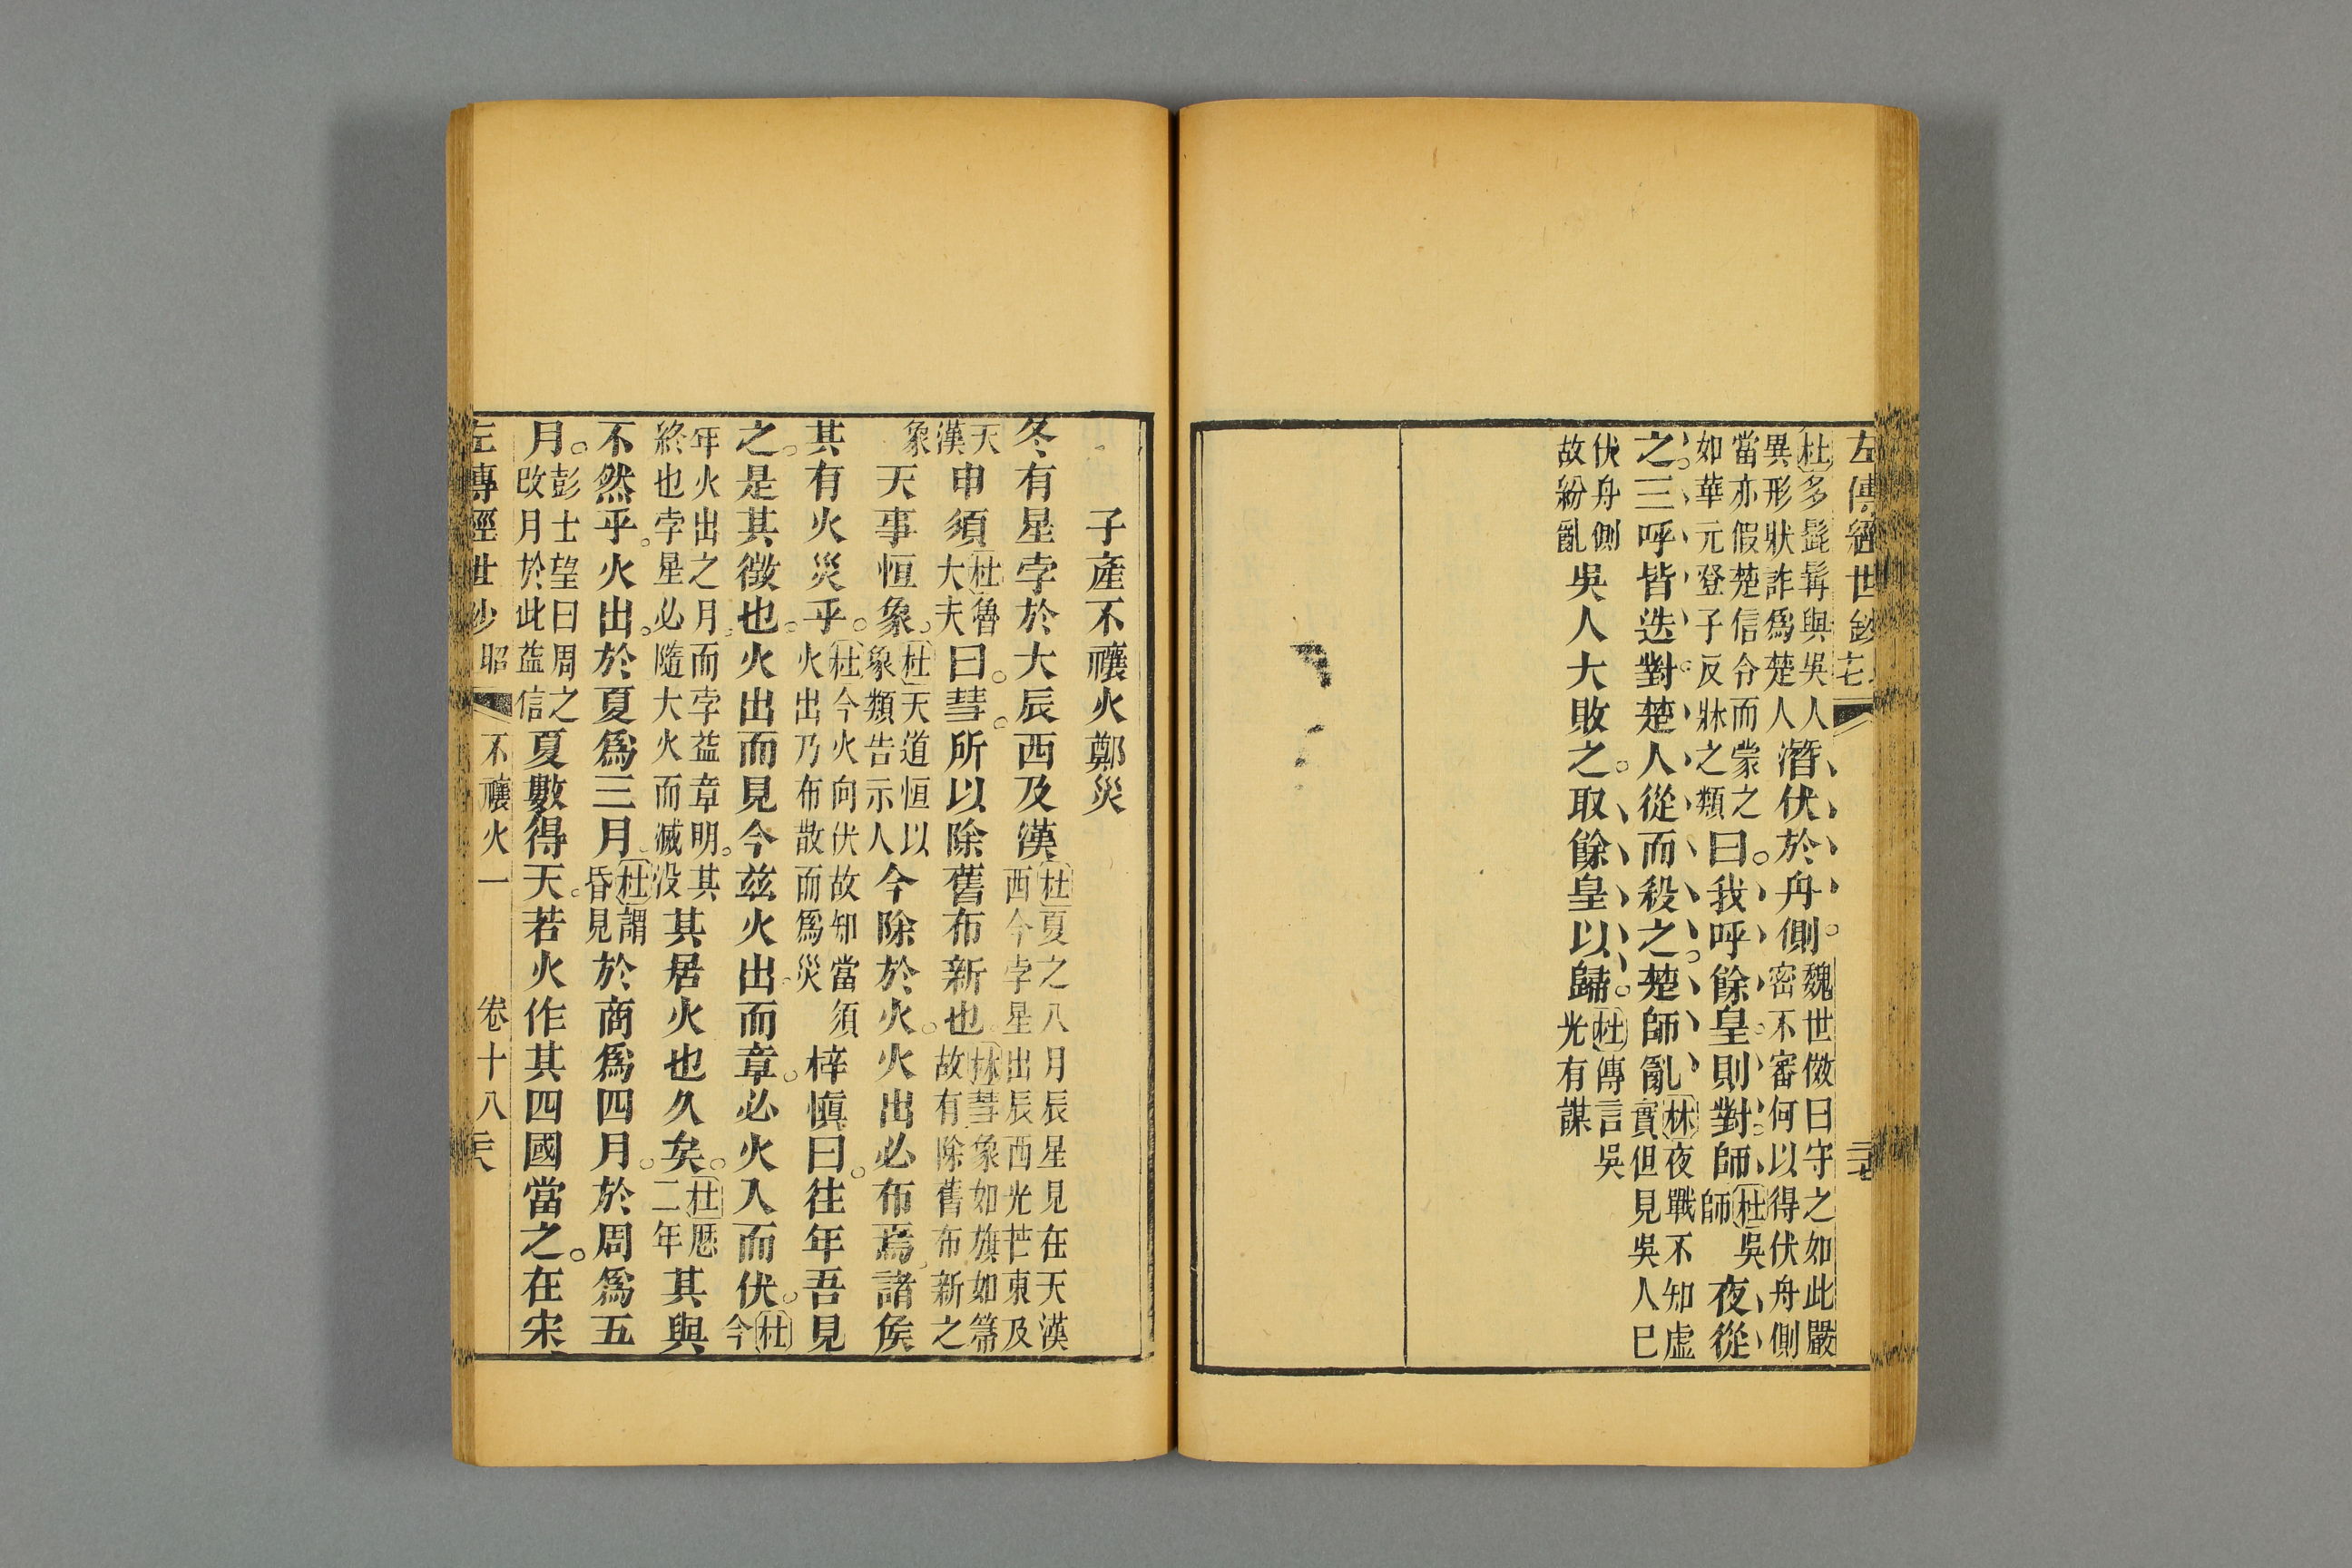 左傳經世鈔
杜多髭髯與吳人異形狀詐爲楚人潛伏於舟側魏世傚曰守之如此嚴密不審何以得伏舟側
當亦假楚信令而蒙之如華元登子反牀之類曰我呼餘皇則對師杜吳師夜從
之三呼皆迭對楚人從而殺之楚師亂林夜戰不知虛實但見吳人已
伏舟側故紛亂吳人大敗之取餘皇以歸杜傳言吳光有謀
子產不禳火鄭災
冬有星孛於大辰西及漢杜夏之八月辰星見在天漢西今孛星出辰西光芒東及
天漢申須杜魯大夫曰彗所以除舊布新也林彗象如旗如箒故有除舊布新之
象天事恒象杜天道恒以象類告示人今除於火火出必布焉諸侯
其有火災乎杜今火向伏故知當須火出乃布散而爲災梓愼曰往年吾見
之是其徵也火出而見今兹火出而章必火入而伏杜今
年火出之月而孛益章明其終也孛星必隨大火而滅没其居火也久矣杜歷二年其與
不然乎火出於夏爲三月杜謂昏見於商爲四月於周爲五
月彭士望曰周之改月於此益信夏數得天若火作其四國當之在宋
左傳經世鈔 昭 不禳火一 卷十八 二六